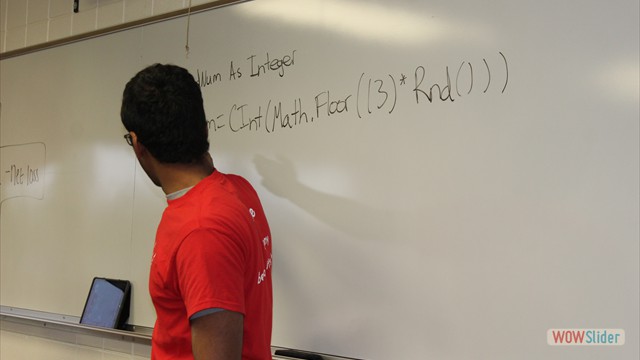 Num As Integer
m= CInt(Math.Floor((3)*Rnd()))
-Net loss
WOWSlider